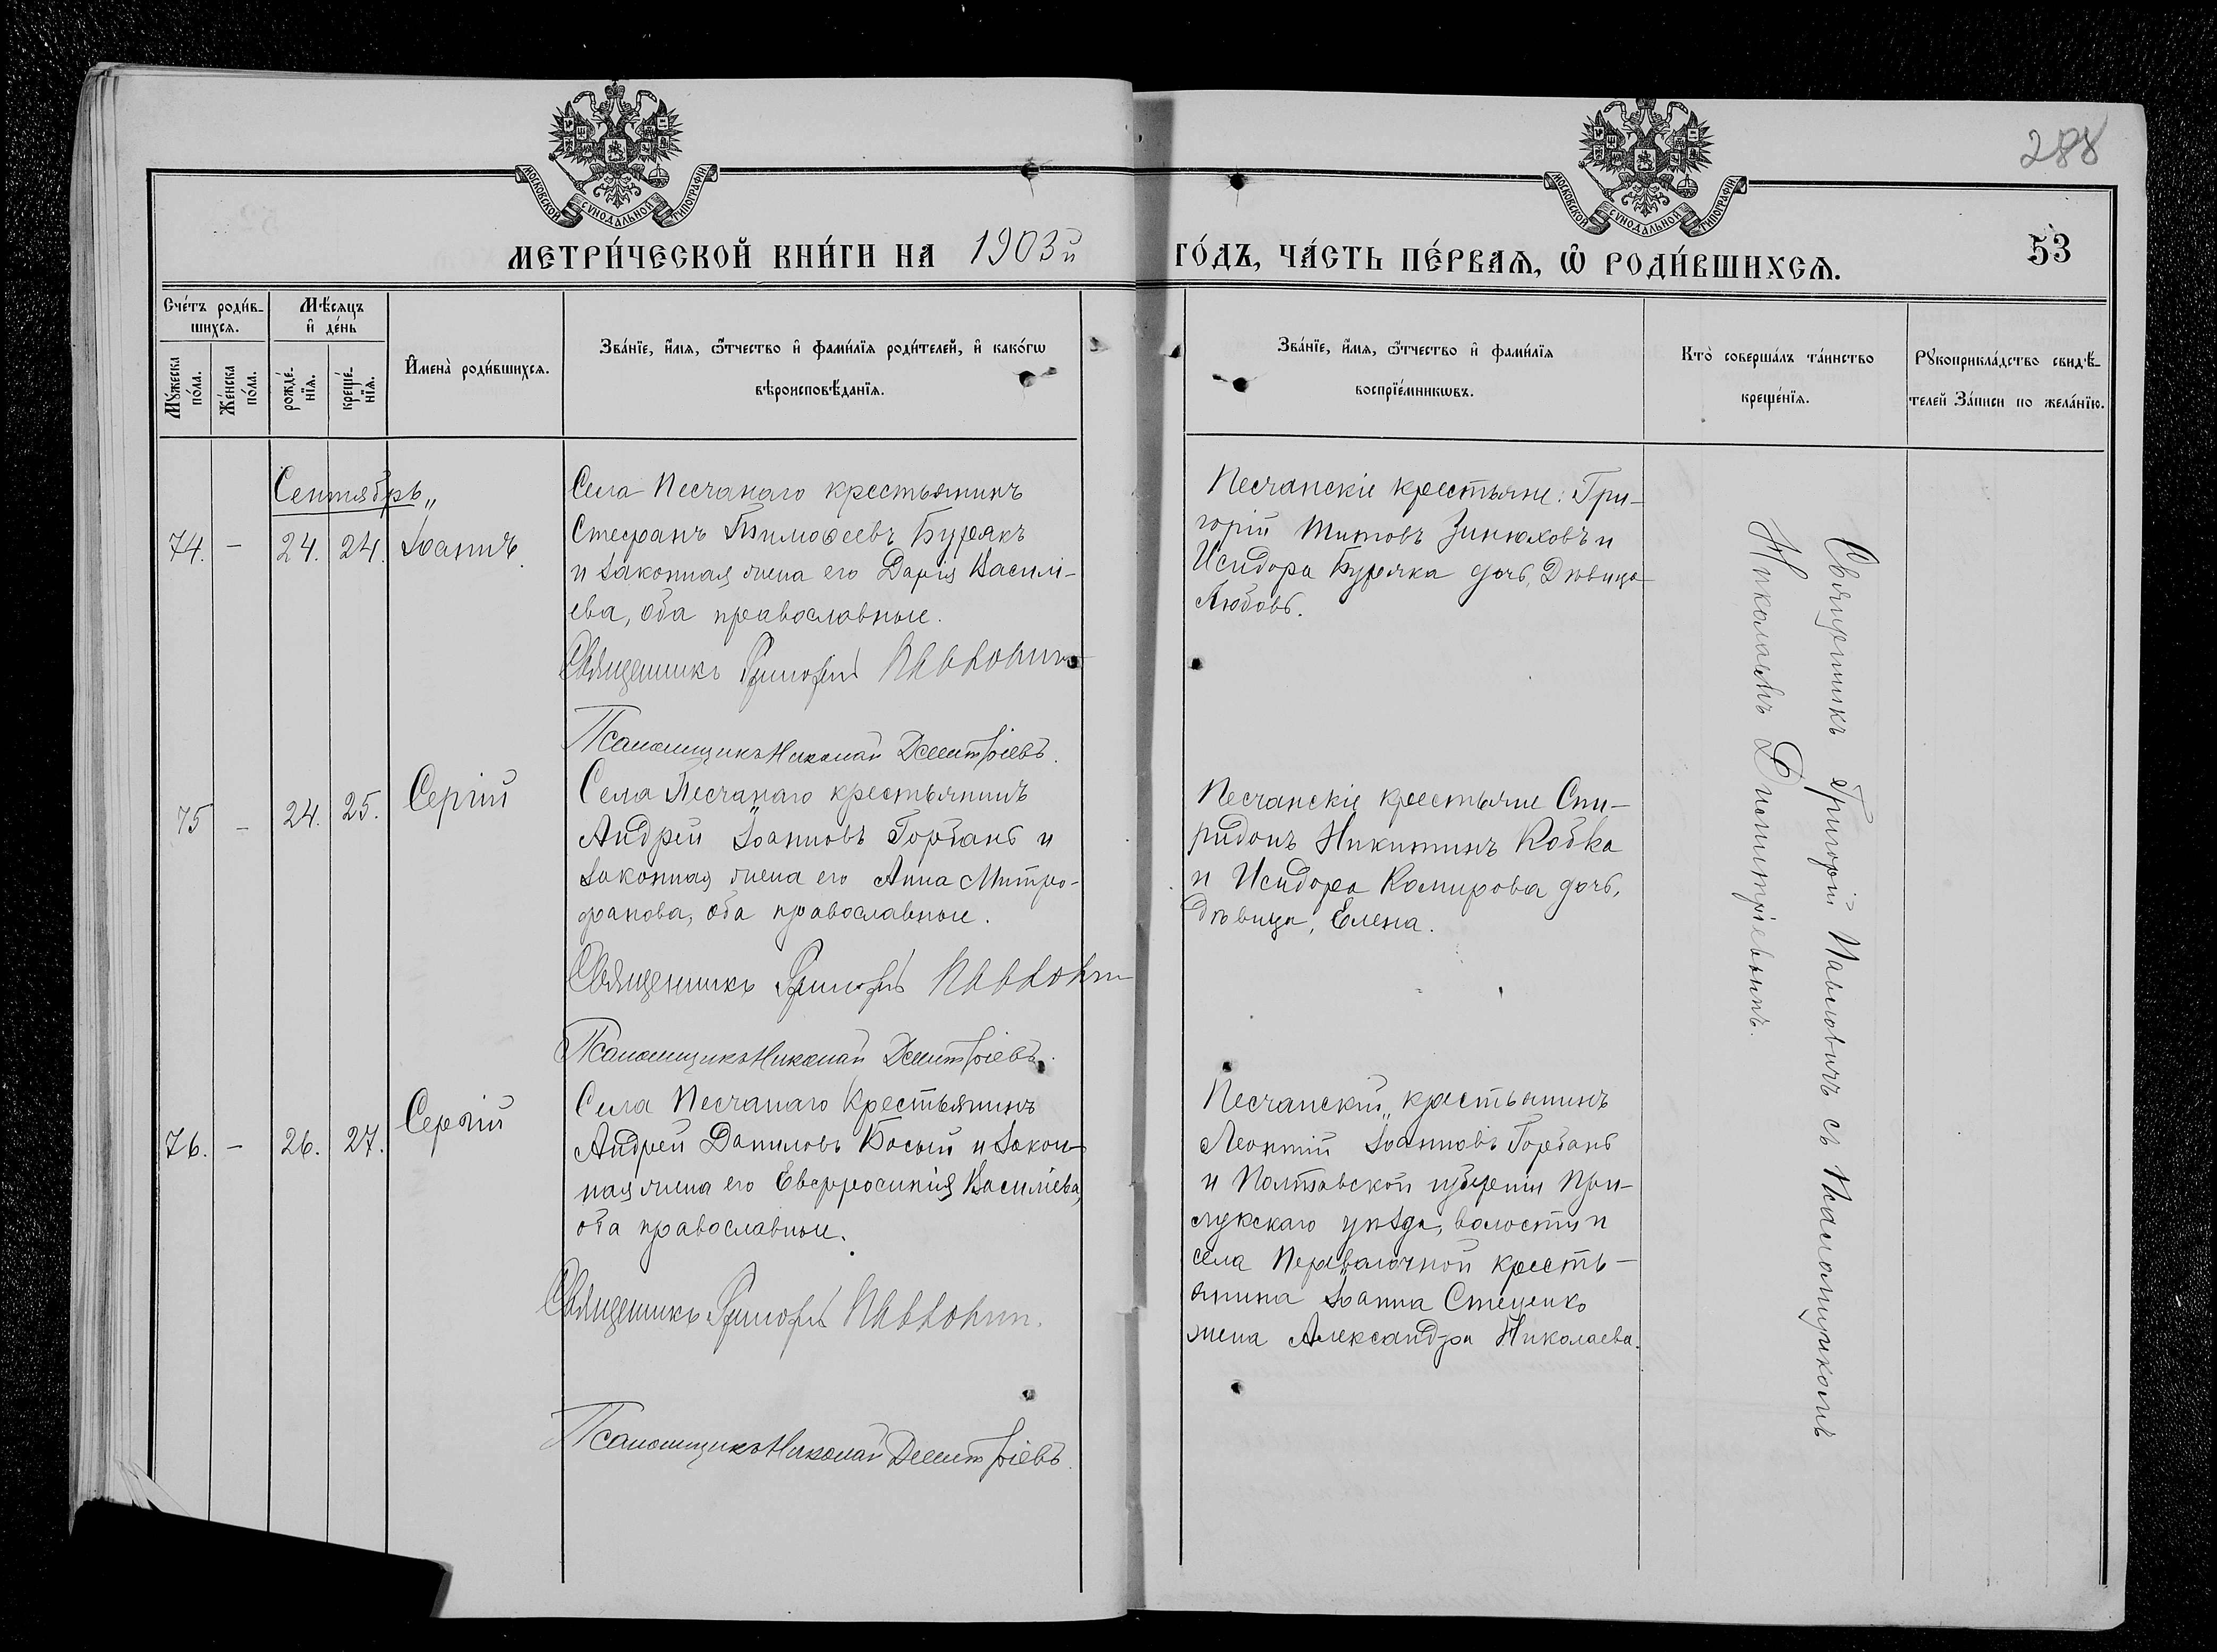 288
МОСКОВСКОЙ СУНОДАЛЬНОЙ ТИПОГРАФІИ
МОСКОВСКОЙ СУНОДАЛЬНОЙ ТИПОГРАФІИ
53
МЕТРИ́ЧЕСКОЙ КНИ́ГИ НА 1903й ГО́ДЪ, ЧА́СТЬ ПЕ́РВАѦ, Ѡ҆ РОДИ́ВШИХСѦ.
Сче́тъ роди́в-
шихсѧ.
Мꙋ́жеска по́ла.
Же́нска по́ла.
Мѣ́сѧцъ
и҆ де́нь
рожде́-
нїѧ.
креще́-
нїѧ.
И҆мена̀ роди́вшихсѧ.
Зва́нїе, и҆́мѧ, ѻ҆́тчество и҆ фами́лїѧ роди́телей, и҆ како́гѡ
вѣроисповѣ́данїѧ.
Зва́нїе, и҆́мѧ, ѻ҆́тчество и҆ фами́лїѧ
воспрїе́мникѡвъ.
Кто̀ соверша́лъ та́инство
креще́нїѧ.
Рꙋкоприкла́дство свидѣ́-
телей За́писи по жела́нїю.
Сентябрь
74. - 24. 24. Іоаннъ.
Села Песчанаго крестьянинъ
Стефанъ Тимоѳеевъ Бурякъ
и законная жена его Дарія Васили-
ева, оба православные.
Священникъ Григорій Павловичъ
Псаломщикъ Николай Дмитріевъ.
Песчанскіе крестьяне: Гри-
горій Титовъ Зинюховъ и
Исидора Буряка дочь, Дѣвица
Любовь.
75 - 24. 25. Сергій
Села Песчанаго крестьянинъ
Андрей Іоанновъ Горбань и
законная жена его Анна Митро-
фанова, оба православные.
Священникъ Григорій Павлович
Псаломщикъ Николай Дмитріевъ.
Песчанскіе крестьяне Спи-
ридонъ Никитинъ Кобка
и Исидора Комирова дочь,
Дѣвица, Елена.
76. - 26. 27. Сергій
Села Песчанаго Крестьянинъ
Андрей Даниловъ Босый и закон-
ная жена его Евфросинія Василіева,
оба православные.
Священникъ Григорій Павлович.
Псаломщикъ Николай Дмитріевъ.
Песчанскій крестьянинъ
Леонтій Іоанновъ Горбань
и Полтавской губерніи При-
лукскаго уѣзда, волости и
села Переволочной кресть-
янина Іоанна Стеценко
жена Александра Николаева.
Священникъ Григорій Павловичъ съ Псаломщикомъ
Николаемъ Дмитріевымъ.